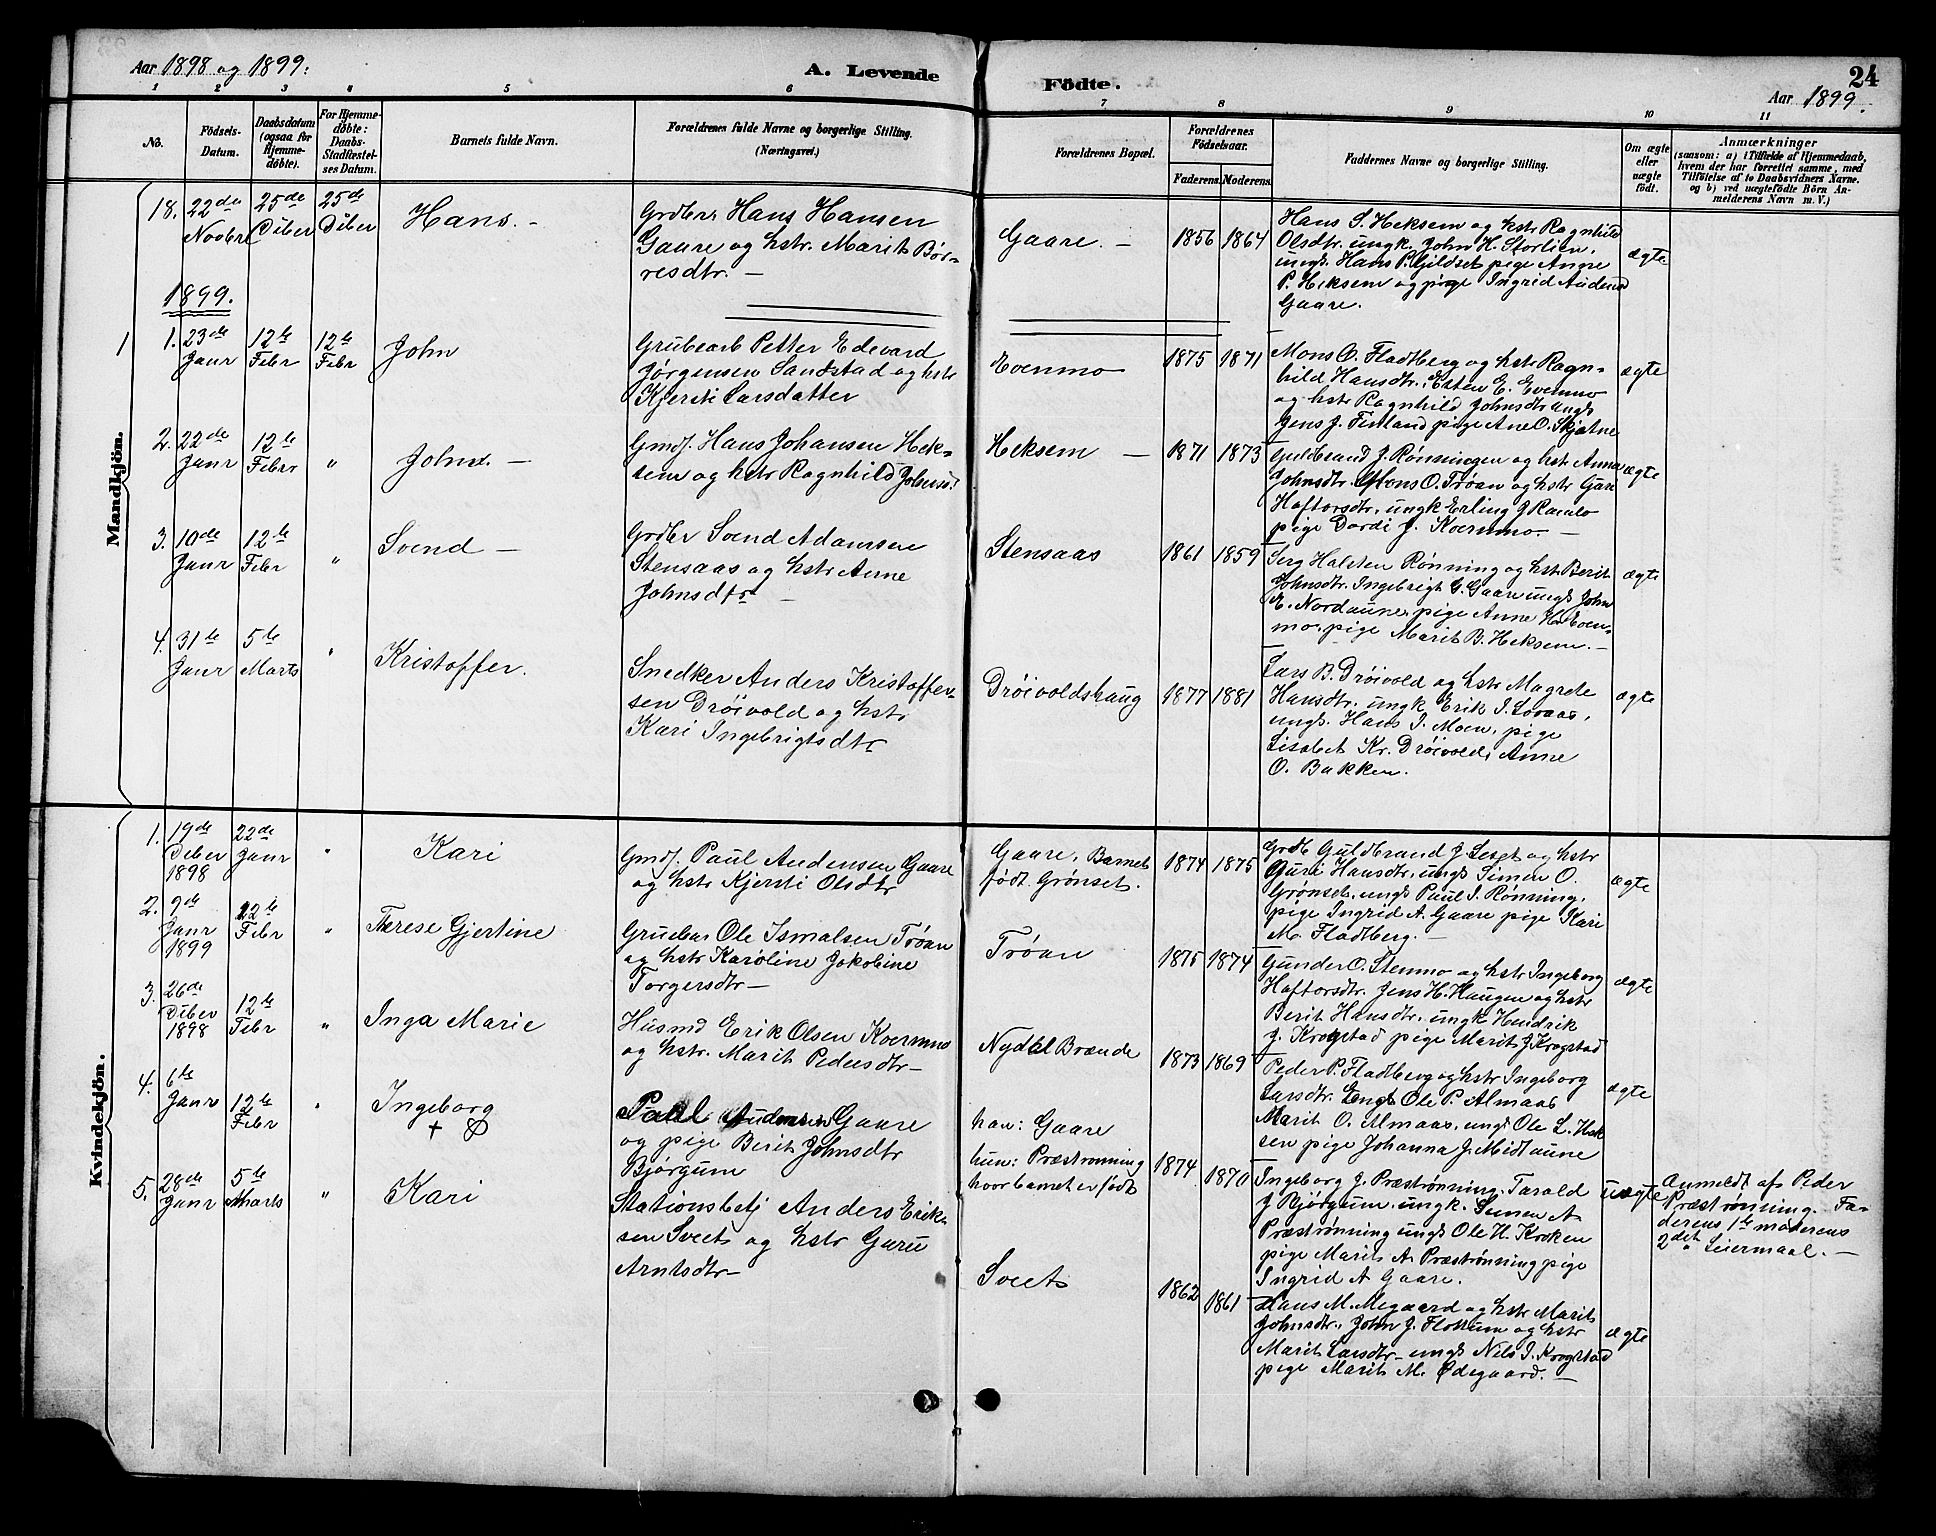 Aar 1898 og 1899.
A. Levende
Födte.
24
Aar 1899.
1 2 3 4 5 6 7 8 9 10 11
No.
Födsels-
Datum.
Daabsdatum
(ogsaa for
Hjemme-
döbte).
For Hjemme-
döbte:
Daabs-
Stadfæstel-
ses Datum.
Barnets fulde Navn.
Forældrenes fulde Navne og borgerlige Stilling.
(Næringsvei.)
Forældrenes Bopæl.
Forældrenes
Födselsaar.
Faderens. Moderens.
Faddernes Navne og borgerlige Stilling.
Om ægte
eller
uægte
födt.
Anmærkninger
(saasom: a) i Tilfælde af Hjemmedaab,
hvem der har forrettet samme, med
Tilföielse af to Daabsvidners Navne.
og b) ved uægtefödte Börn An-
melderens Navn m. V.)
Mandkjön.
18. 22de Novbr 25de Dcber 25de Dcber
Hans. -
Grdbr. Hans Hansen
Gaare og hstr. Marit Bør-
resdtr. -
Gaare. -
1856 1864
Hans S. Heksem og hstr Ragnhild
Olsdtr. ungk. John H. Storlien,
ungk. Hans P. Gjildset pige Anne
P. Heksem og pige Ingrid Audensd
Gaare.
ægte
1899.
1
1. 23de Janr 12te Febr 12te Febr
John
Grubearb Petter Edevard
Jørgensen Sandstad og hstr
Kjersti Larsdatter
Evenmo
1875 1871
Mons O. Fladtberg og hstr Ragn-
hild Hansdtr. Esten E. Evenmo
og hstr Ragnhild Johnsdtr ungk
Jens J. Finland pige Ane O. Skjøtne
ægte
2. 22de Janr 12te Febr "
John. -
Gmdj. Hans Johansen Hek-
sem og hstr Ragnhild Johnsd.
Heksem -
1871 1873
Guldbrand J. Rønningen og hst. Anne
Johnsdtr. Mons O. Trøan og hstr Guri
Haftorsdtr. ungk Erling J Ramlo
pige Dordi J. Kvernmo. -
ægte
3. 10de Janr 12te Febr "
Svend -
Grdbr Svend Adamsen
Stensaas og hstr Anne
Johnsdtr -
Stensaas
1861 1859
Serg Halsten Rønning og hstr Berit
Johnsdtr. Ingebrigt G. Gaare ungk John
E. Nordaune, pige Anne H. Even-
mo. pige Marit B. Heksem. -
ægte
4. 31te Janr 5te Marts "
Kristoffer.
Snedker Anders Kristoffer-
sen Drøivold og hstr
Kari Ingebrigtsdtr
Drøivoldshaug
1877 1881
Lars B. Drøivold og hstr Magrete
Hansdtr. ungk Erik J. Løvaas,
ungk. Hans J. Moen, pige
Lisabet Kr. Drøivold, Anne
O. Bakken.
ægte
Kvindekjön.
1. 19de Dcber 1898 22de Janr "
Kari
Gmdj. Paul Andensen Gaare
og hstr Kjersti Olsdtr
Gaare, Barnet
født Grønset.
1874 1875
Grdb Guldbrand J. Leset og hstr
Guri Hansdtr. ungk Simen O.
Grønset, ungk Paul I. Rønning,
pige Ingrid A. Gaare pige Kari
M. Fladtberg. -
ægte
2. 9de Janr 1899 12te Febr "
Therese Gjertine
Gruebar. Ole Ismalsen Trøan
og hstr Karoline Jakobine
Torgersdtr -
Trøan
1875 1874
Gunder O. Stenmo og hstr Ingeborg
Haftorsdtr. Jens H. Haugen og hstr
Berit Hansdtr. ungk Hendrik
J. Krogstad pige Marit J. Krogstad
ægte
3. 26de Dcber 1898 12te Febr "
Inga Marie
Husmd Erik Olsen Kvernmo
og hstr. Marit Pedersdtr -
Nydal Brænde
1873 1869
Peder P. Fladtberg og hstr Ingeborg
Larsdtr. Ungk Ole P. Almaas
Marit O. Almaas, ungk Ole L. Hek
sem pige Johanna J. Midtaune
ægte
4. 6te Janr 12te Febr "
Ingeborg
Paul Audensen Gaare
og pige Berit Johnsdtr
Bjørgum
han: Gaare
hun: Præstrønning
hvor barnet er født
1874 1870
Ingeborg J. Præstrønning. Tarald
J Bjørgum. ungk. Simen A
Præstrønning ungk Ole H. Kroken
pige Marit A Præstrønning pige
Ingrid A Gaare.
uægte
Anmeldt af Peder
Præstrønning. Fa-
derens 1te moderens
2det Leiermaal. -
5. 28de Janr 5te Marts "
Kari
Stationsbetj Anders Erik-
sen Sveet og hstr Guru
Arntsdtr -
Sveet
1862 1861
Hans M. Megaard og hstr Marit
Johnsdtr. John J. Flottum og hstr
Marit Larsdtr - ungk Nils J. Krogstad
pige Marit M. Ødegaard. -
ægte